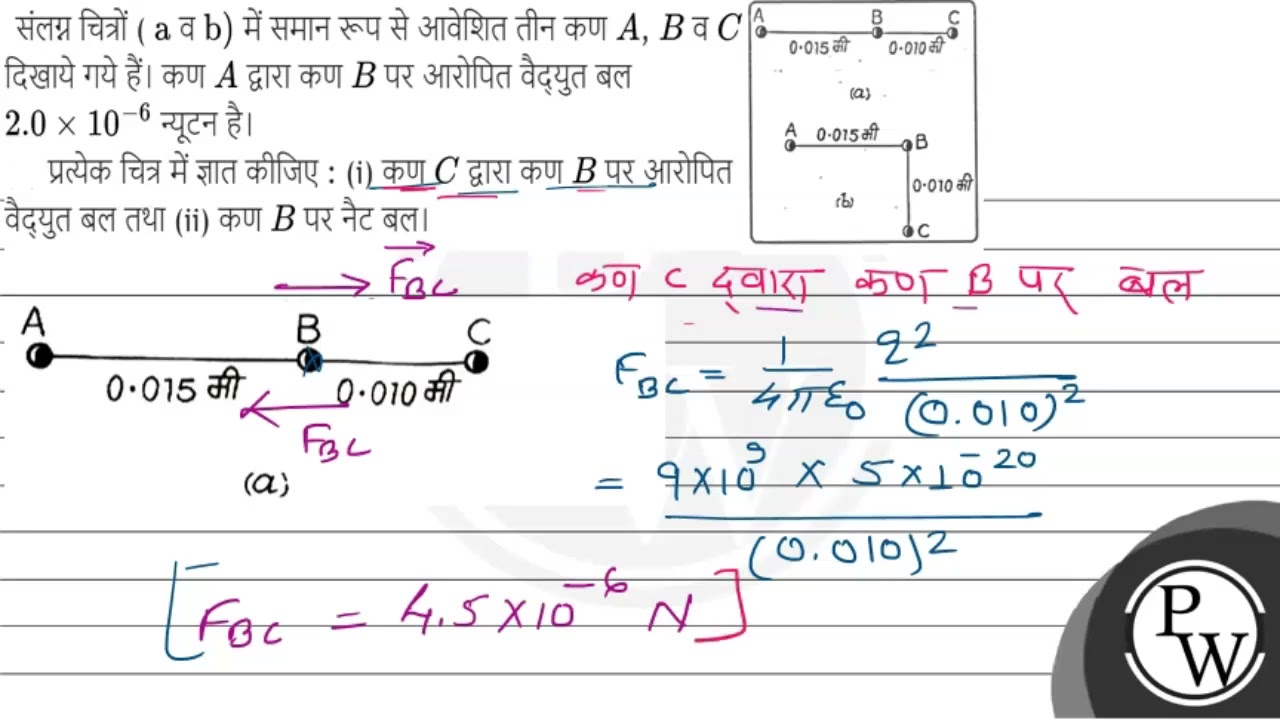 संलग्न चित्रों ( a व b) में समान रूप से आवेशित तीन कण A, B व C
दिखाये गये हैं। कण A द्वारा कण B पर आरोपित वैद्युत बल
2.0 × 10⁻⁶ न्यूटन है।
प्रत्येक चित्र में ज्ञात कीजिए : (i) कण C द्वारा कण B पर आरोपित
वैद्युत बल तथा (ii) कण B पर नैट बल।
A B C
0·015 मी 0·010 मी
(a)
A 0·015 मी B
0·010 मी
(b)
C
F⃗BC
A B C
0·015 मी 0·010 मी
FBC
(a)
कण C द्वारा कण B पर बल
FBC = 1/4πε₀ q²/(0.010)²
= 9×10⁹ × 5×10⁻²⁰/(0.010)²
[FBC = 4.5×10⁻⁶ N]
P
W